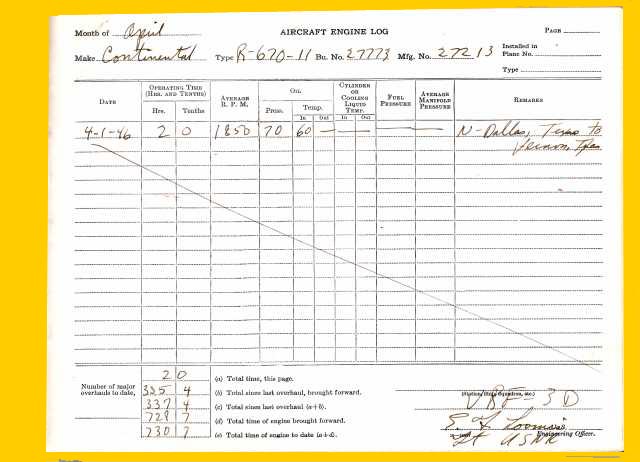 Month of April AIRCRAFT ENGINE LOG PAGE
Make Continental Type R-670-11 Bu. No. 27773 Mfg. No. 27213 Installed in Plane No.
Type
DATE OPERATING TIME (HRS. AND TENTHS) AVERAGE R. P. M. OIL CYLINDER OR COOLING LIQUID TEMP. FUEL PRESSURE AVERAGE MANIFOLD PRESSURE REMARKS
Hrs. Tenths Press. Temp.
In Out In Out
4-1-46 2 0 1850 70 60 — — — — — N-Dallas, Texas to
Vernon, Texas
2 0 (a) Total time, this page.
Number of major overhauls to date, 335 4 (b) Total time since last overhaul, brought forward.
337 4 (c) Total since last overhaul (a+b).
728 7 (d) Total time of engine brought forward.
730 7 (e) Total time of engine to date (a+d).
(Station, Ship, Squadron, etc.)
VRF-3D
E. F. Loomis
Lt USNR Engineering Officer.